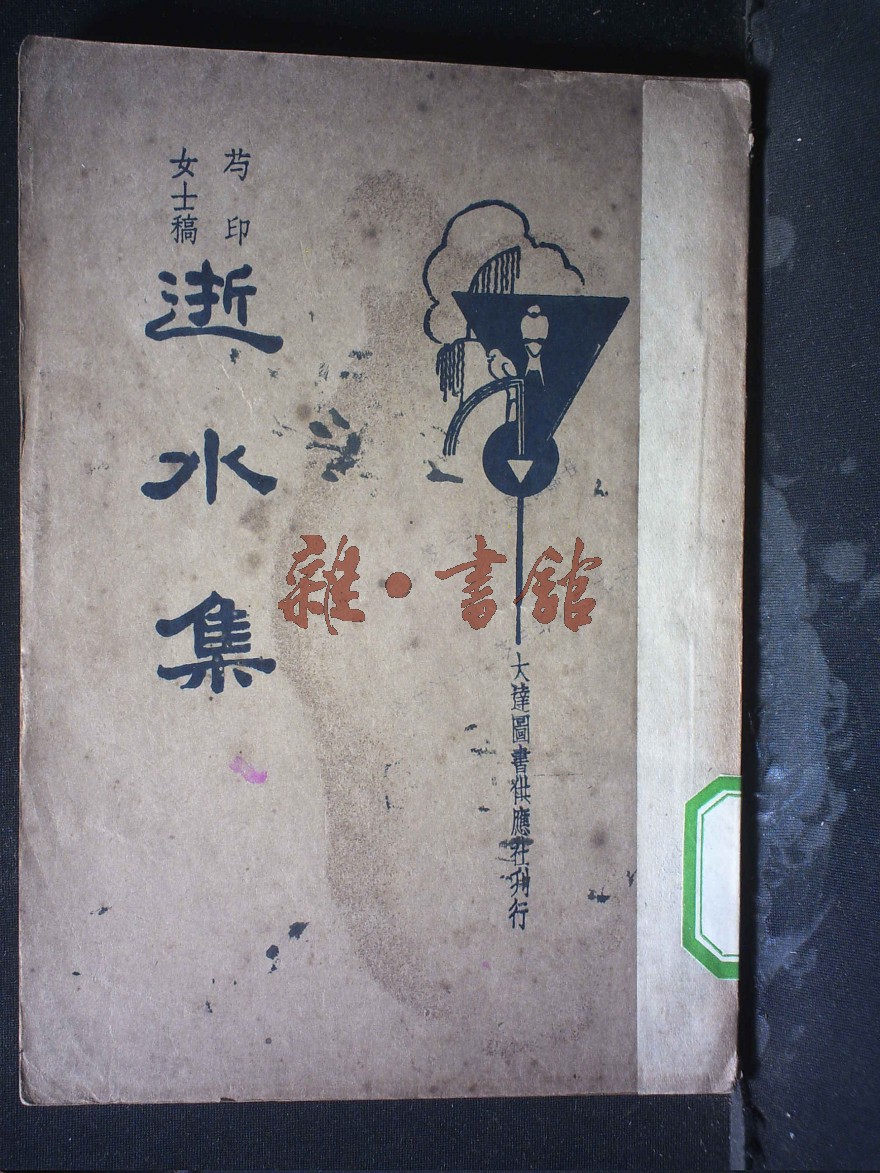 芍印
女士稿
逝水集
大達圖書供應社刋行
雜·書館